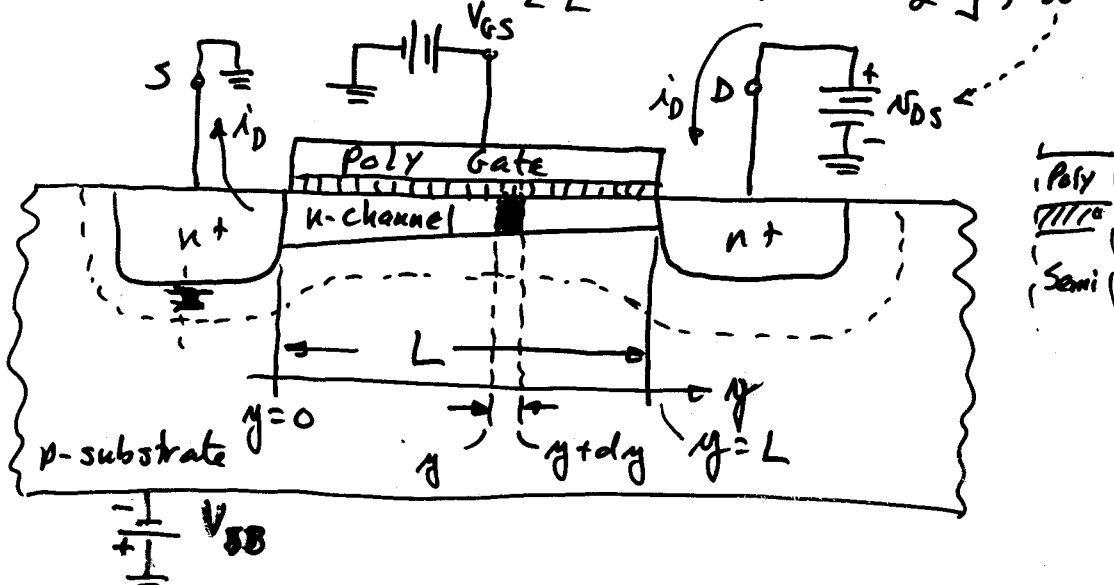 V_GS
S
i_D
i_D
D
+
v_DS
-
Poly Gate
n-channel
n+
n+
Poly
Semi
L
y=0
y
y
y+dy
y=L
p-substrate
-
+